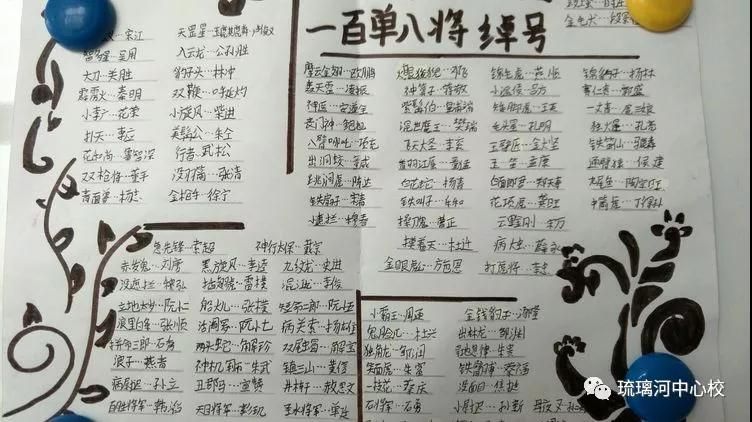 一百单八将绰号
宋江
智多星…吴用
入云龙…公孙胜
大刀…关胜
豹子头…林冲
霹雳火…秦明
双鞭…呼延灼
小李广…花荣
小旋风…柴进
扑天…李应
美髯公…朱仝
花和尚…鲁智深
行者…武松
双枪将…董平
没羽箭…张清
青面兽…杨志
金枪手…徐宁
急先锋…索超
神行太保…戴宗
赤发鬼…刘唐
黑旋风…李逵
九纹龙…史进
没遮拦…穆弘
插翅虎…雷横
混江龙…李俊
立地太岁…阮小二
船火儿…张横
短命二郎…阮小五
浪里白条…张顺
活阎罗…阮小七
病关索…杨雄
拼命三郎…石秀
两头蛇…解珍
双尾蝎…解宝
浪子…燕青
神机军师…朱武
镇三山…黄信
病尉迟…孙立
丑郡马…宣赞
井木犴…郝思文
百胜将军…韩滔
天目将军…彭玘
圣水将军…单廷
摩云金翅…欧鹏
火眼狻猊…邓飞
锦毛虎…燕顺
锦豹子…杨林
轰天雷…凌振
神算子…蒋敬
小温侯…吕方
赛仁贵…郭盛
神医…安道全
紫髯伯…皇甫端
矮脚虎…王英
一丈青…扈三娘
丧门神…鲍旭
混世魔王…樊瑞
毛头星…孔明
独火星…孔亮
八臂哪吒…项充
飞天大圣…李衮
玉臂匠…金大坚
铁笛仙…马麟
出洞蛟…童威
翻江蜃…童猛
玉…孟康
通臂猿…侯健
跳涧虎…陈达
白花蛇…杨春
白面郎君…郑天寿
九尾龟…陶宗旺
铁扇子…宋清
铁叫子…乐和
花项虎…龚旺
中箭虎…丁得孙
小遮拦…穆春
操刀鬼…曹正
云里刚…宋万
摸着天…杜迁
病大虫…薛永
金眼彪…施恩
打虎将…李忠
小霸王…周通
金钱豹子…汤隆
鬼脸儿…杜兴
出林龙…邹渊
独角龙…邹润
旱地忽律…朱贵
笑面虎…朱富
铁臂膊…蔡福
一枝花…蔡庆
没面目…焦挺
石将军…石勇
小尉迟…孙新
琉璃河中心校